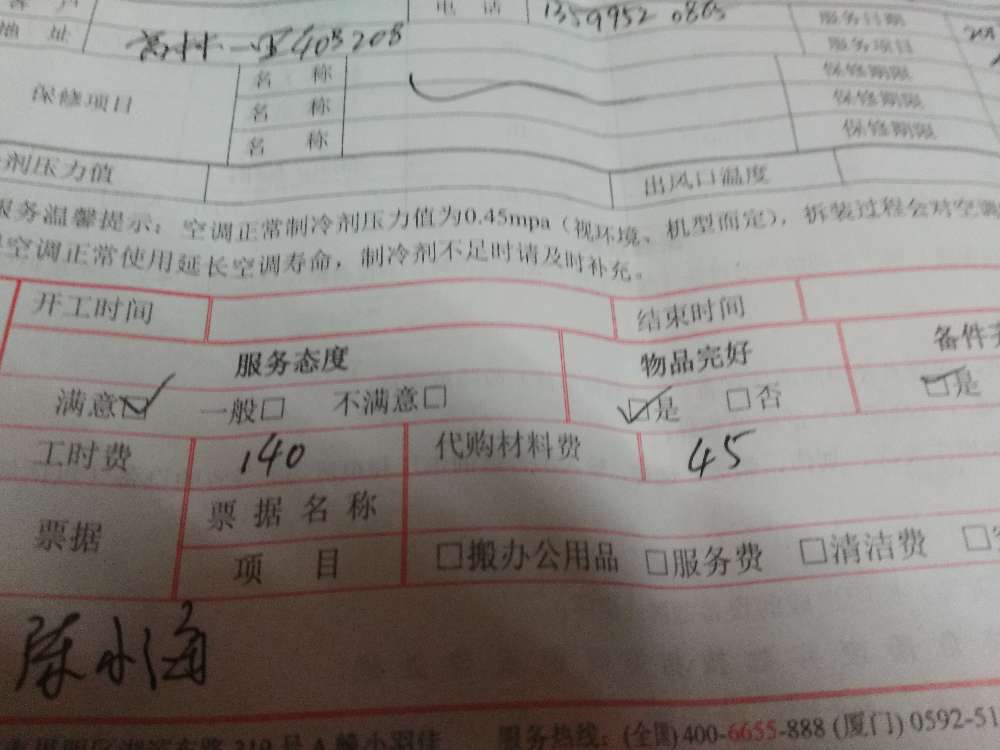 电 话 13599520863 服务日期
地 址 一区403208 服务项目
保修项目 名 称 保修期限
名 称 保修期限
名 称 保修期限
剂压力值 出风口温度
服务温馨提示：空调正常制冷剂压力值为0.45mpa（视环境、机型而定），拆装过程会对空调
空调正常使用延长空调寿命，制冷剂不足时请及时补充。
开工时间 结束时间
服务态度 物品完好 备件
满意☑ 一般□ 不满意□ ☑是 □否 ☑是
工时费 140 代购材料费 45
票据 票据名称
项 目 □搬办公用品 □服务费 □清洁费 □
陈水海
服务热线：(全国)400-6655-888 (厦门) 0592-51